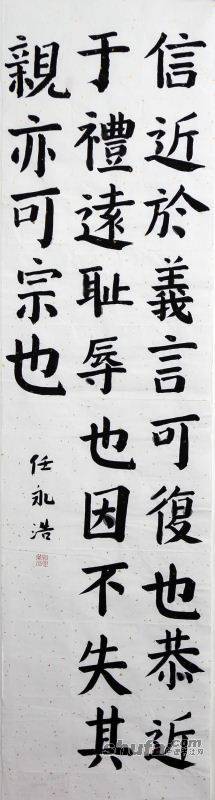 信近於義言可復也恭近
于禮遠耻辱也因不失其
親亦可宗也
任永浩